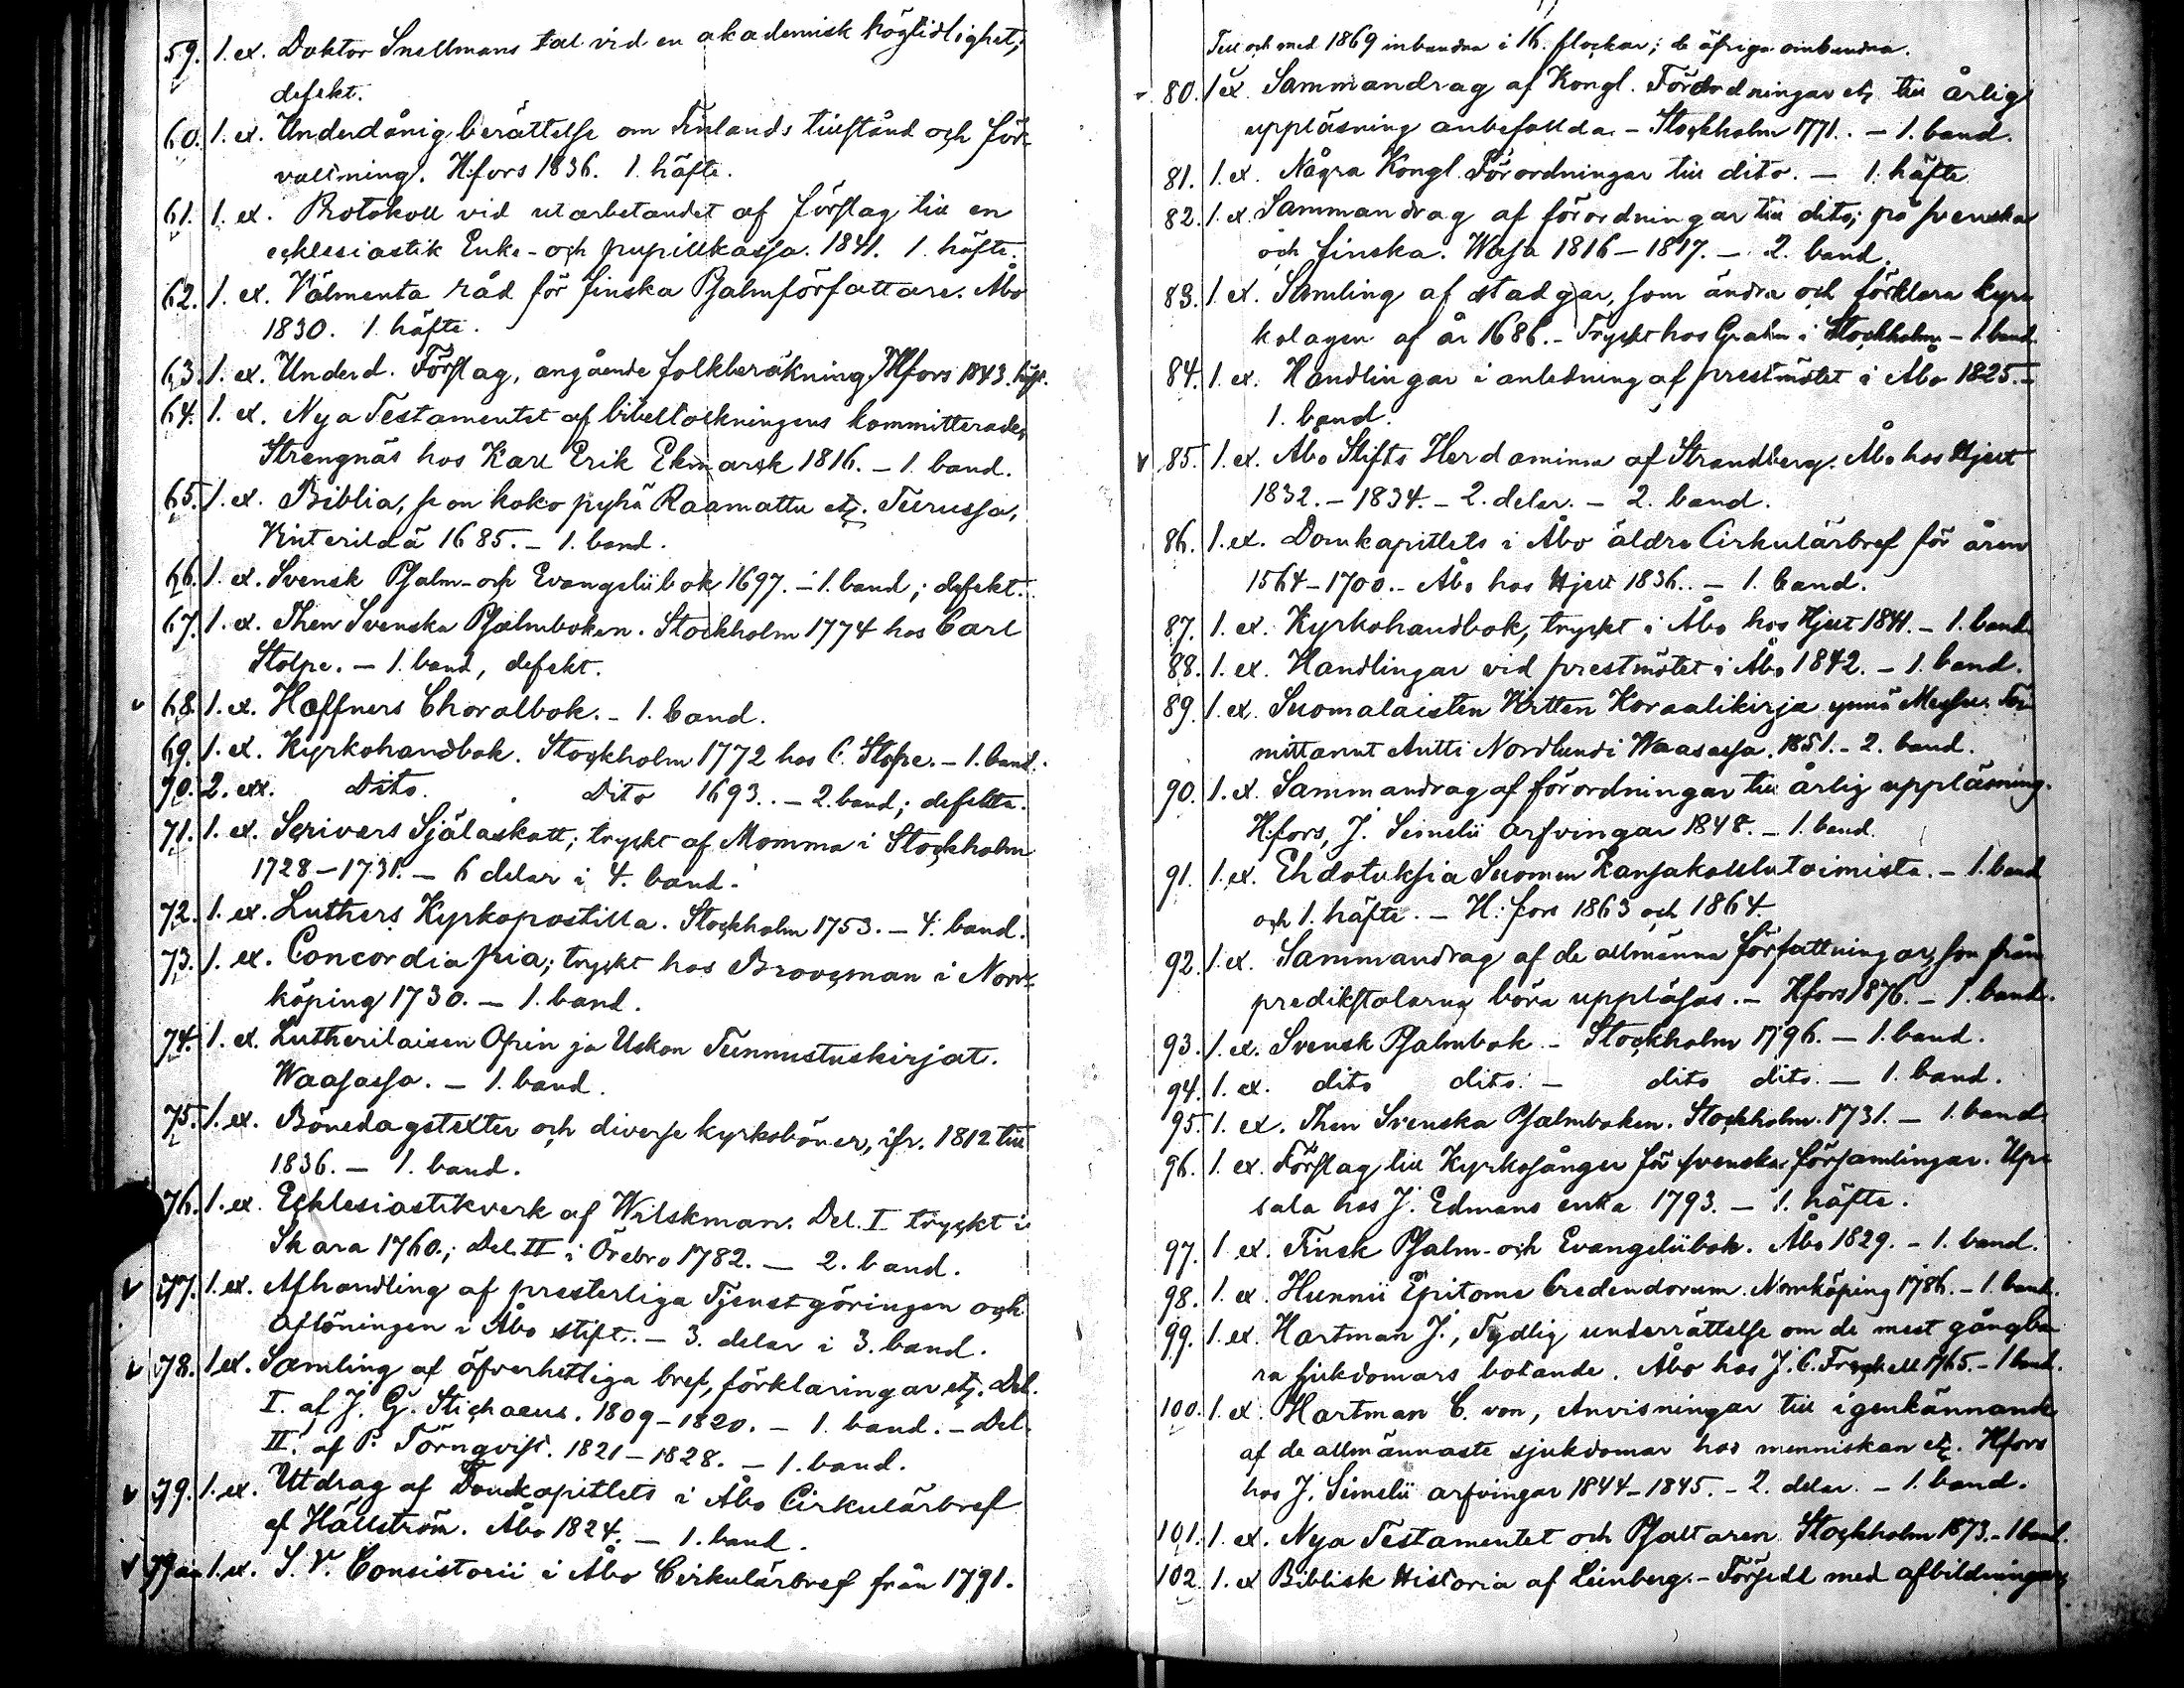 59. 1. ex. Doktor Snellmans tal vid en akademisk högtidlighet;
defekt.
60. 1. ex. Underdånig berättelse om Finlands tillstånd och för-
valtning. H:fors 1836. 1. häfte.
61. 1. ex. Protokoll vid utarbetandet af förslag till en
ecklesiastik Enke- och pupillkassa. 1841. 1. häfte.
62. 1. ex. Välmenta råd för finska Psalmförfattare. Åbo
1830. 1. häfte.
63. 1. ex. Underd. Förslag, angående folkberäkning. Hfors 1843. häft.
64. 1. ex. Nya Testamentet af bibeltolkningens kommitterade,
Strengnäs hos Karl Erik Ekmarck 1816. – 1. band.
65. 1. ex. Biblia, se on koko pyhä Raamattu etc. Turussa,
Winterildä 1685. – 1. band.
66. 1. ex. Svensk Psalm- och Evangeliibok 1697. – 1. band; defekt.
67. 1. ex. Then Svenska Psalmboken. Stockholm 1774 hos Carl
Stolpe. – 1. band, defekt.
68. 1. ex. Hæffners Choralbok. – 1. band.
69. 1. ex. Kyrkohandbok. Stockholm 1772 hos C. Stolpe. – 1. band.
70. 2. exx. Dito. Dito 1693. – 2. band; defekta.
71. 1. ex. Scrivers Själaskatt; tryckt af Momma i Stockholm
1728–1731. – 6 delar i 4. band.
72. 1. ex. Luthers Kyrkopostilla. Stockholm 1753. – 4. band.
73. 1. ex. Concordia pia; tryckt hos Broocman i Norr-
köping 1730. – 1. band.
74. 1. ex. Lutherilaisen Opin ja Uskon Tunnustuskirjat.
Waasassa. – 1. band.
75. 1. ex. Bönedagstexter och diverse kyrkoböner, ifr. 1812 till
1836. – 1. band.
76. 1. ex. Ecklesiastikverk af Wilskman. Del. I tryckt i
Skara 1760.; Del. II i Örebro 1782. – 2. band.
77. 1. ex. Afhandling af presterliga Tjenstgöringen och
aflöningen i Åbo stift. – 3. delar i 3. band.
78. 1. ex. Samling af öfverhetliga bref, förklaringar etc. Del.
I. af J. G. Stichaeus. 1809–1820. – 1. band. – Del.
II. af P. Törnqvist. 1821–1828. – 1. band.
79. 1. ex. Utdrag af Domkapitlets i Åbo Cirkulärbref
af Hällström. Åbo 1824. – 1. band.
79 1. ex. S. V. Consistorii i Åbo Cirkulärbref från 1791.
Till och med 1869 inbundna i 16. flockar; de öfriga oinbundna.
80. 1 ex. Sammandrag af Kongl. Förordningar etc. till årlig
uppläsning anbefallda. – Stockholm 1771. – 1. band.
81. 1. ex. Några Kongl. Förordningar till dito. – 1. häfte.
82. 1. ex. Sammandrag af förordningar till dito; på svenska
och finska. Wasa 1816–1817. – 2. band.
83. 1. ex. Samling af stadgar, som ändra och förklara kyr-
kolagen af år 1686. – Tryckt hos Grahn i Stockholm – 1. band.
84. 1. ex. Handlingar i anledning af prestmötet i Åbo 1825. –
1. band.
85. 1. ex. Åbo Stifts Herdaminne af Strandberg. Åbo hos Hjelt
1832. – 1834. – 2. delar. – 2. band.
86. 1. ex. Domkapitlets i Åbo äldre Cirkulärbref för åren
1564–1700. – Åbo hos Hjelt 1836. – 1. band.
87. 1. ex. Kyrkohandbok, tryckt i Åbo hos Hjelt 1841. – 1. band.
88. 1. ex. Handlingar vid prestmötet i Åbo 1842. – 1. band.
89. 1. ex. Suomalaisten Wirtten Koraalikirja ynnä Messu. Toi-
mittanut Antti Nordlund i Waasassa. 1851. – 2. band.
90. 1. ex. Sammandrag af förordningar till årlig uppläsning.
H:fors, J. Simelii arfvingar 1848. – 1. band.
91. 1. ex. Ehdotuksia Suomen Kansakoululutoimista. – 1. band
och 1. häfte. – H:fors 1863 och 1864.
92. 1. ex. Sammandrag af de allmänna författningar, som från
predikstolarna böra uppläsas. – Hfors 1876. – 1. band.
93. 1. ex. Svensk Psalmbok – Stockholm 1796. – 1. band.
94. 1. ex. dito dito. – dito dito. – 1. band.
95. 1. ex. Then Svenska Psalmboken. Stockholm. 1731. – 1. band.
96. 1. ex. Förslag till Kyrkosånger för svenska församlingar. Up-
sala hos J. Edmans enka 1793. – 1. häfte.
97. 1 ex. Finsk Psalm- och Evangeliibok. Åbo 1829. – 1. band.
98. 1. ex. Hunnii Epitome Credendorum. Norrköping 1786. – 1. band.
99. 1. ex. Hartman J., Tydlig underrättelse om de mest gångba-
ra sjukdomars botande. Åbo hos J. C. Frenckell 1765. – 1 band.
100. 1. ex. Hartman C. von, Anvisningar till igenkännande
af de allmännaste sjukdomar hos menniskan etc. Hfors
hos J. Simelii arfvingar 1844–1845. – 2. delar. – 1. band.
101. 1. ex. Nya Testamentet och Psaltaren. Stockholm 1873. – 1 band.
102. 1. ex Biblisk Historia af Leinberg. – Försedd med afbildningar,